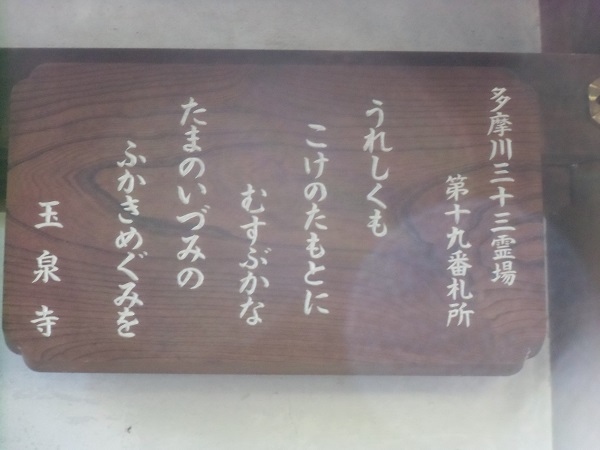 多摩川三十三霊場
第十九番札所
うれしくも
こけのたもとに
むすぶかな
たまのいづみの
ふかきめぐみを
玉泉寺